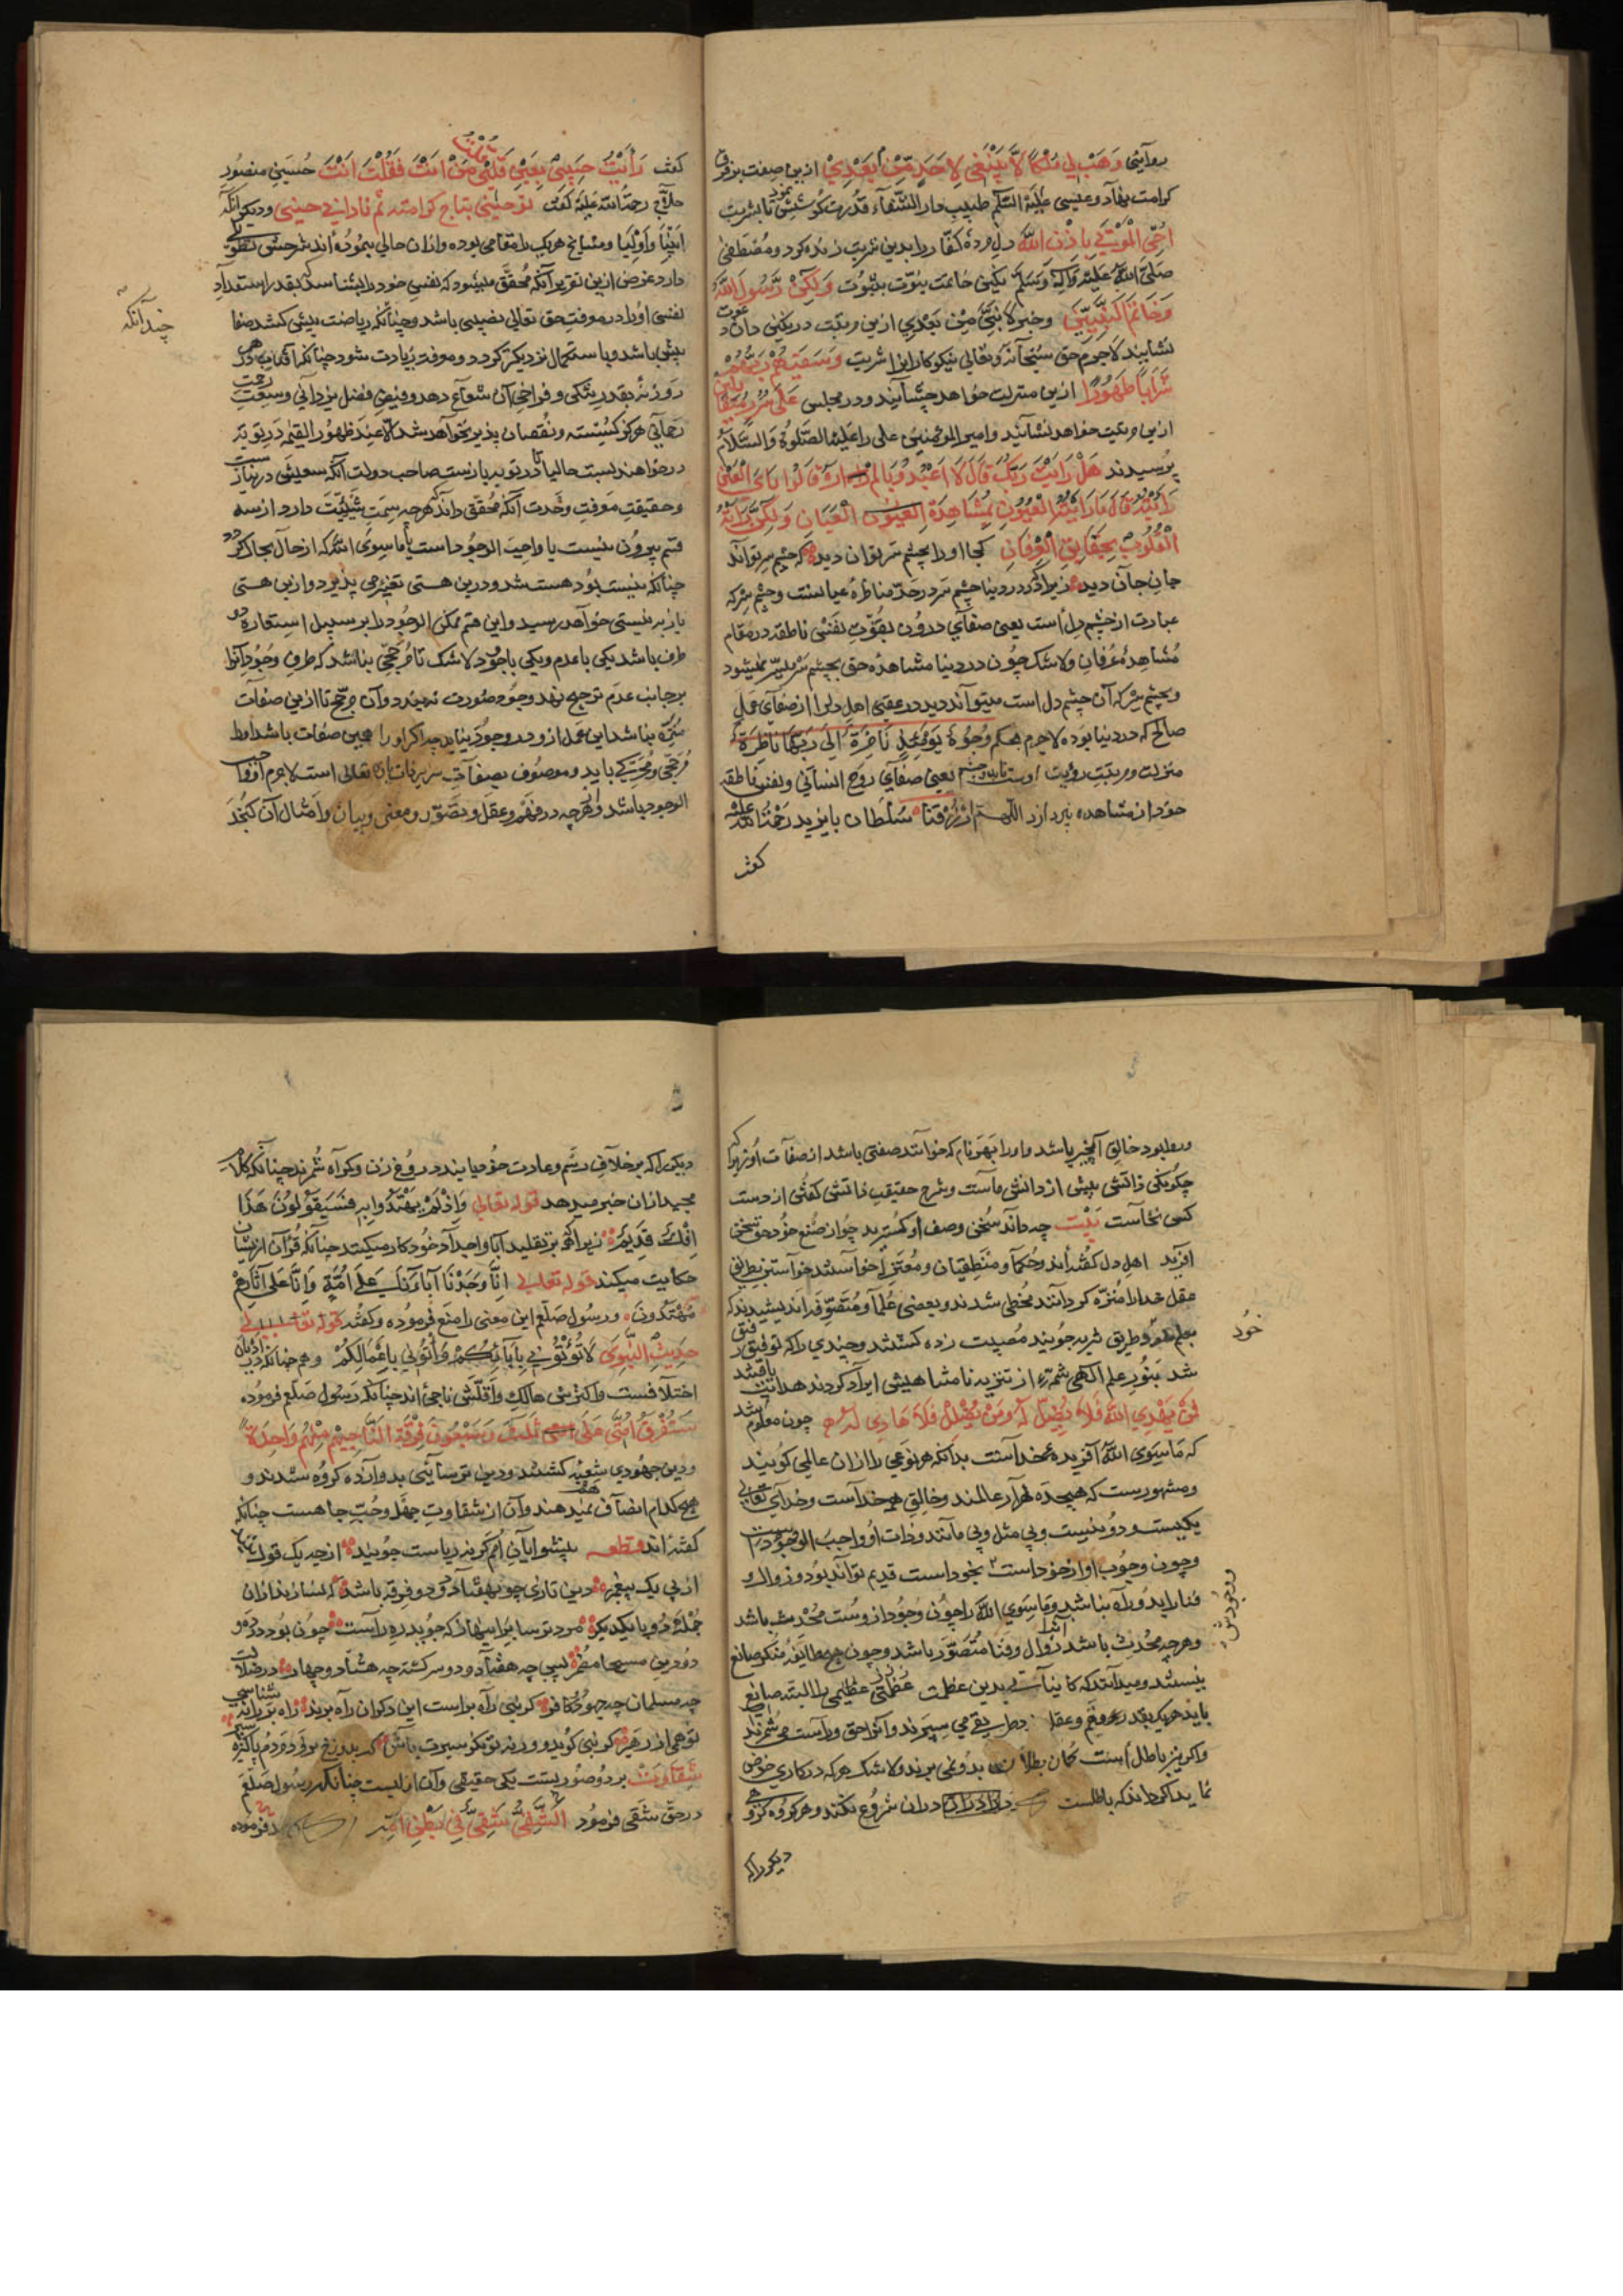 روآیتی وَهَبْ لِي مُلْكًا لَّا يَنْبَغِي لِأَحَدٍ مِّنْ بَعْدِيْ ازین صفت بزرق
کرامت نهاد و عیسی علیه السلام طبیب دار الشفاء قدرت کوشش نمود تا بشربت
اُحْيِ الْمَوْتٰى بِاِذْنِ اللّٰه دل مرده کفار را بدین شربت زنده کرد و مصطفی
صلی الله علیه وآله وسلم نگین خاتمت نبوّت بثبوت وَلٰكِنْ رَّسُولَ اللّٰه
وَخَاتَمَ النَّبِيّٖنَ و خبر لا نَبِيَّ مِنْ بَعْدِي ازین مرتبت در نگین دان
نشانیند لاجرم حق سبحانه وتعالی نیکوکارانرا شربت وَسَقٰيهُمْ رَبُّهُمْ
شَرَابًا طَهُوْرًا ازین منزلت خواهد چشانیند و در مجلس عَلٰى سُرُرٍ مُتَقَابِلِينَ
ازین مرتبت خواهد نشانیند وامیر المومنین علی را علیه الصلوة والسلام
پرسیدند هَلْ رَأَيْتَ رَبَّكَ قَالَ لَا اَعْبُدُ رَبًّا لَمْ اَرَهُ قَالُوْا بِاَيِّ الْعَيْنِ
رَأَيْتَهُ قَالَ مَا رَأَيْتُهُ الْعُيُوْنُ بِمُشَاهَدَةِ الْعَيَانِ وَلٰكِنْ رَأَتْهُ
الْقُلُوْبُ بِحَقَايِقِ الْعِرْفَانِ کجا او را بچشم سر توان دید که چشم سر تواند
جان جان دید زیرا که در دنیا چشم سر در حدّ مناظرهٔ عیانست و چشم سر که
عبارت از چشم دل است یعنی صفآی درون بقوت نفس ناطقه در مقام
مشاهدهٔ عرفان ولاشک چون در دنیا مشاهدهٔ حق بچشم سر میسّر نمیشود
و بچشم سر که آن چشم دل است میتواند دید در عقبی اهل دل را از صفآی عمل
صالح که در دنیا بوده لاجرم بحکم وُجُوْهٌ يَوْمَئِذٍ نَاضِرَةٌ اِلٰى رَبِّهَا نَاظِرَةٌ
منزلت و مرتبت رؤیت اوست تا بدان چشم یعنی صفآی روح انسانی ونفس ناطقهٔ
خود از مشاهده بپردازد اللهم ارْزُقْنَا سلطان بایزید رحمة الله علیه
گفت

گفت رَأَيْتُ حَبِيْبِيْ بِعَيْنِيْ قُلْتُ مَنْ اَنْتَ فَقُلْتُ اَنْتَ حسین منصور
حلاج رحمة الله علیه گفت
انبیا و اولیا و مشایخ هریک را مقامی بوده و ازان حالی نموده اند شرحش تطویل
دارد غرض ازین تقریر آنکه محقق میشود که نفس خود را بشناسد بقدر استعداد
نفس او را در معرفت حق تعالی نصیبی باشد و چنانکه ریاضت بیش کشد صفا
چندآنکه
بیش باشد و باستکمال نزدیکتر گردد و معرفت زیادت شود چنانکه آفتاب هر
روزنه بقدر تنگی و فراخی آن شعاع دهد و فیض فضل یزدانی وسعت رحمت
رحمانی هرگز گسسته و نقصان پذیر نخواهد شد الا عند ظهور القیمه در توبه
درخواهند بست حالیا تا در توبه بازست صاحب دولت آنکه سعیش درین باز
و حقیقت معرفت وحدت آنکه محقق داند که هرچه سمت شیئیت دارد از سه
قسم بیرون نیست یا واجب الوجود است یا ما سوی الله که از حال بحال گردد
چنانکه نیست بود هست شد و درین هستی تغیّر می پذیرد و ازین هستی
باز به نیستی خواهد رسید و این قسم ممکن الوجود را بر سبیل استعاره دو
طرف باشد یکی با عدم و یکی با وجود لاشک تا مرجّحی نباشد که طرف وجود آنرا
بر جانب عدم ترجیح نهد وجود صورت نبندد و آن مرجّح تا ازین صفات
منزّه نباشد این عمل ازو در وجود نیاید چه اگر او را همین صفات باشد او را
الوجود باشد و هرچه در فهم و عقل و تصوّر و معنی و بیان و امثال آن گنجد

ورا بود خالق آنچیز باشد و او را بهر نام که خوانند صفتی باشد از صفات او زیرا که
چگونگی ذاتش بیش از دانش ماست و شرح حقیقت ذاتش گفتن از دست
کس نخاست بیت چه داند سخن وصف او گسترید چو از صنع خود حق سخن
آفرید اهل دل گفته اند و حکما و منطقیان و معتزله خواستند خواستند بطریق
عقل خدا را منزّه گردانند مخطی شدند و بعضی علما و متصوفه اندیشیدند که
بعلم خود طریق تنزیه جویند مصیبت زده گشتند و چندی را که توفیق رفیق
شد بنور علم الهی شمّهٔ از تنزیه نامتناهیش ایراد کردند هدایت یافتند
مَنْ يَهْدِي اللّٰهُ فَلَا مُضِلَّ لَهُ وَمَنْ يُضْلِلْ فَلَا هَادِيَ لَهُ چون معلوم شد
که ما سوی الله آفریدهٔ خداست بدانکه هر نوعی را ازان عالمی گویند
و مشهورست که هیجده هزار عالمند و خالق همه خداست و خدای تعالی
یکیست و دو نیست و بی مثل و بی مانند و ذات او واجب الوجودست
و چون وجوب او از خود است بخود است قدیم تواند بود و زوال و
فنا را بدو راه نباشد و ما سوی الله را چون وجود ازوست محدث باشد
و هرچه محدث باشد زوال و فنا متصوّر باشد و چون هیچ طایفه منکر صانع
نیستند و میدانند که کاینآت بدین عظمت عظمتی عظیمی را البته صانع
باید هریک بقدر فهم و عقل بطریقی می سپرند و آنرا حق و راست می شمرند
و اگر نیز باطل است گمان بطلان بدو نمی برند ولاشک هر که در کاری خوض
نماید اگر داند که باطلست دران شروع نکند و هر گروه گروه
خود
دیگر را که

دیگر را که بر خلاف رسم و عادت خود یابند دروغ زن و گمراه شمرند چنانکه کلام
مجید ازان خبر میدهد قوله تعالی وَاِذْ لَمْ يَهْتَدُوا بِهٖ فَسَيَقُوْلُوْنَ هٰذَا
اِفْكٌ قَدِيْمٌ زیرا که بر تقلید آبا و اجداد خود کار میکنند چنانکه قرآن ازیشان
حکایت میکند قوله تعالی اِنَّا وَجَدْنَا اٰبَاءَنَا عَلٰى اُمَّةٍ وَاِنَّا عَلٰى اٰثَارِهِمْ
مُهْتَدُوْنَ و رسول صلعم این معنی را منع فرموده و گفته قوله تعالی
حَدِيْثُ النَّبَوِيّ لَا تُؤْتُوْنِيْ بِاٰبَائِكُمْ وَأْتُوْنِيْ بِاَعْمَالِكُمْ و همچنانکه در ادیان
اختلافست و اکثرش هالک و اقلّش ناجی اند چنانکه رسول صلعم فرموده
سَتَفْرَقُ اُمَّتِيْ عَلٰى ثَلٰثَ وَسَبْعُوْنَ فِرْقَةٍ النَّاجِيْ مِنْهُمْ وَاحِدَةٌ
و دین جهودی شعبه گشتند و دین ترسائی بدوازده گروه شدند و
هیچ کدام انصاف نمیدهند و آن از شقاوت جهل و حبّ جاه هست چنانکه
گفته اند قطعه پیشوایان امم گر نه ریاست جویند از چه یک قول
از پی یک پیغمبر دین تازی چو بهفتاد و دو فرقه باشد
دو دین مسیحا بسی چه هفتاد و دو سرگشته چه هشتاد و چهار در ضلالت
چه مسلمان چه جهود کافر گر بنی راه براست این دگران راه برند
شقاوت بر دو صورتست یکی حقیقی و آن ازلیست چنانکه رسول صلعم
در حق شقی فرمود اَلشَّقِيُّ شَقِيٌّ فِيْ بَطْنِ اُمِّهٖ